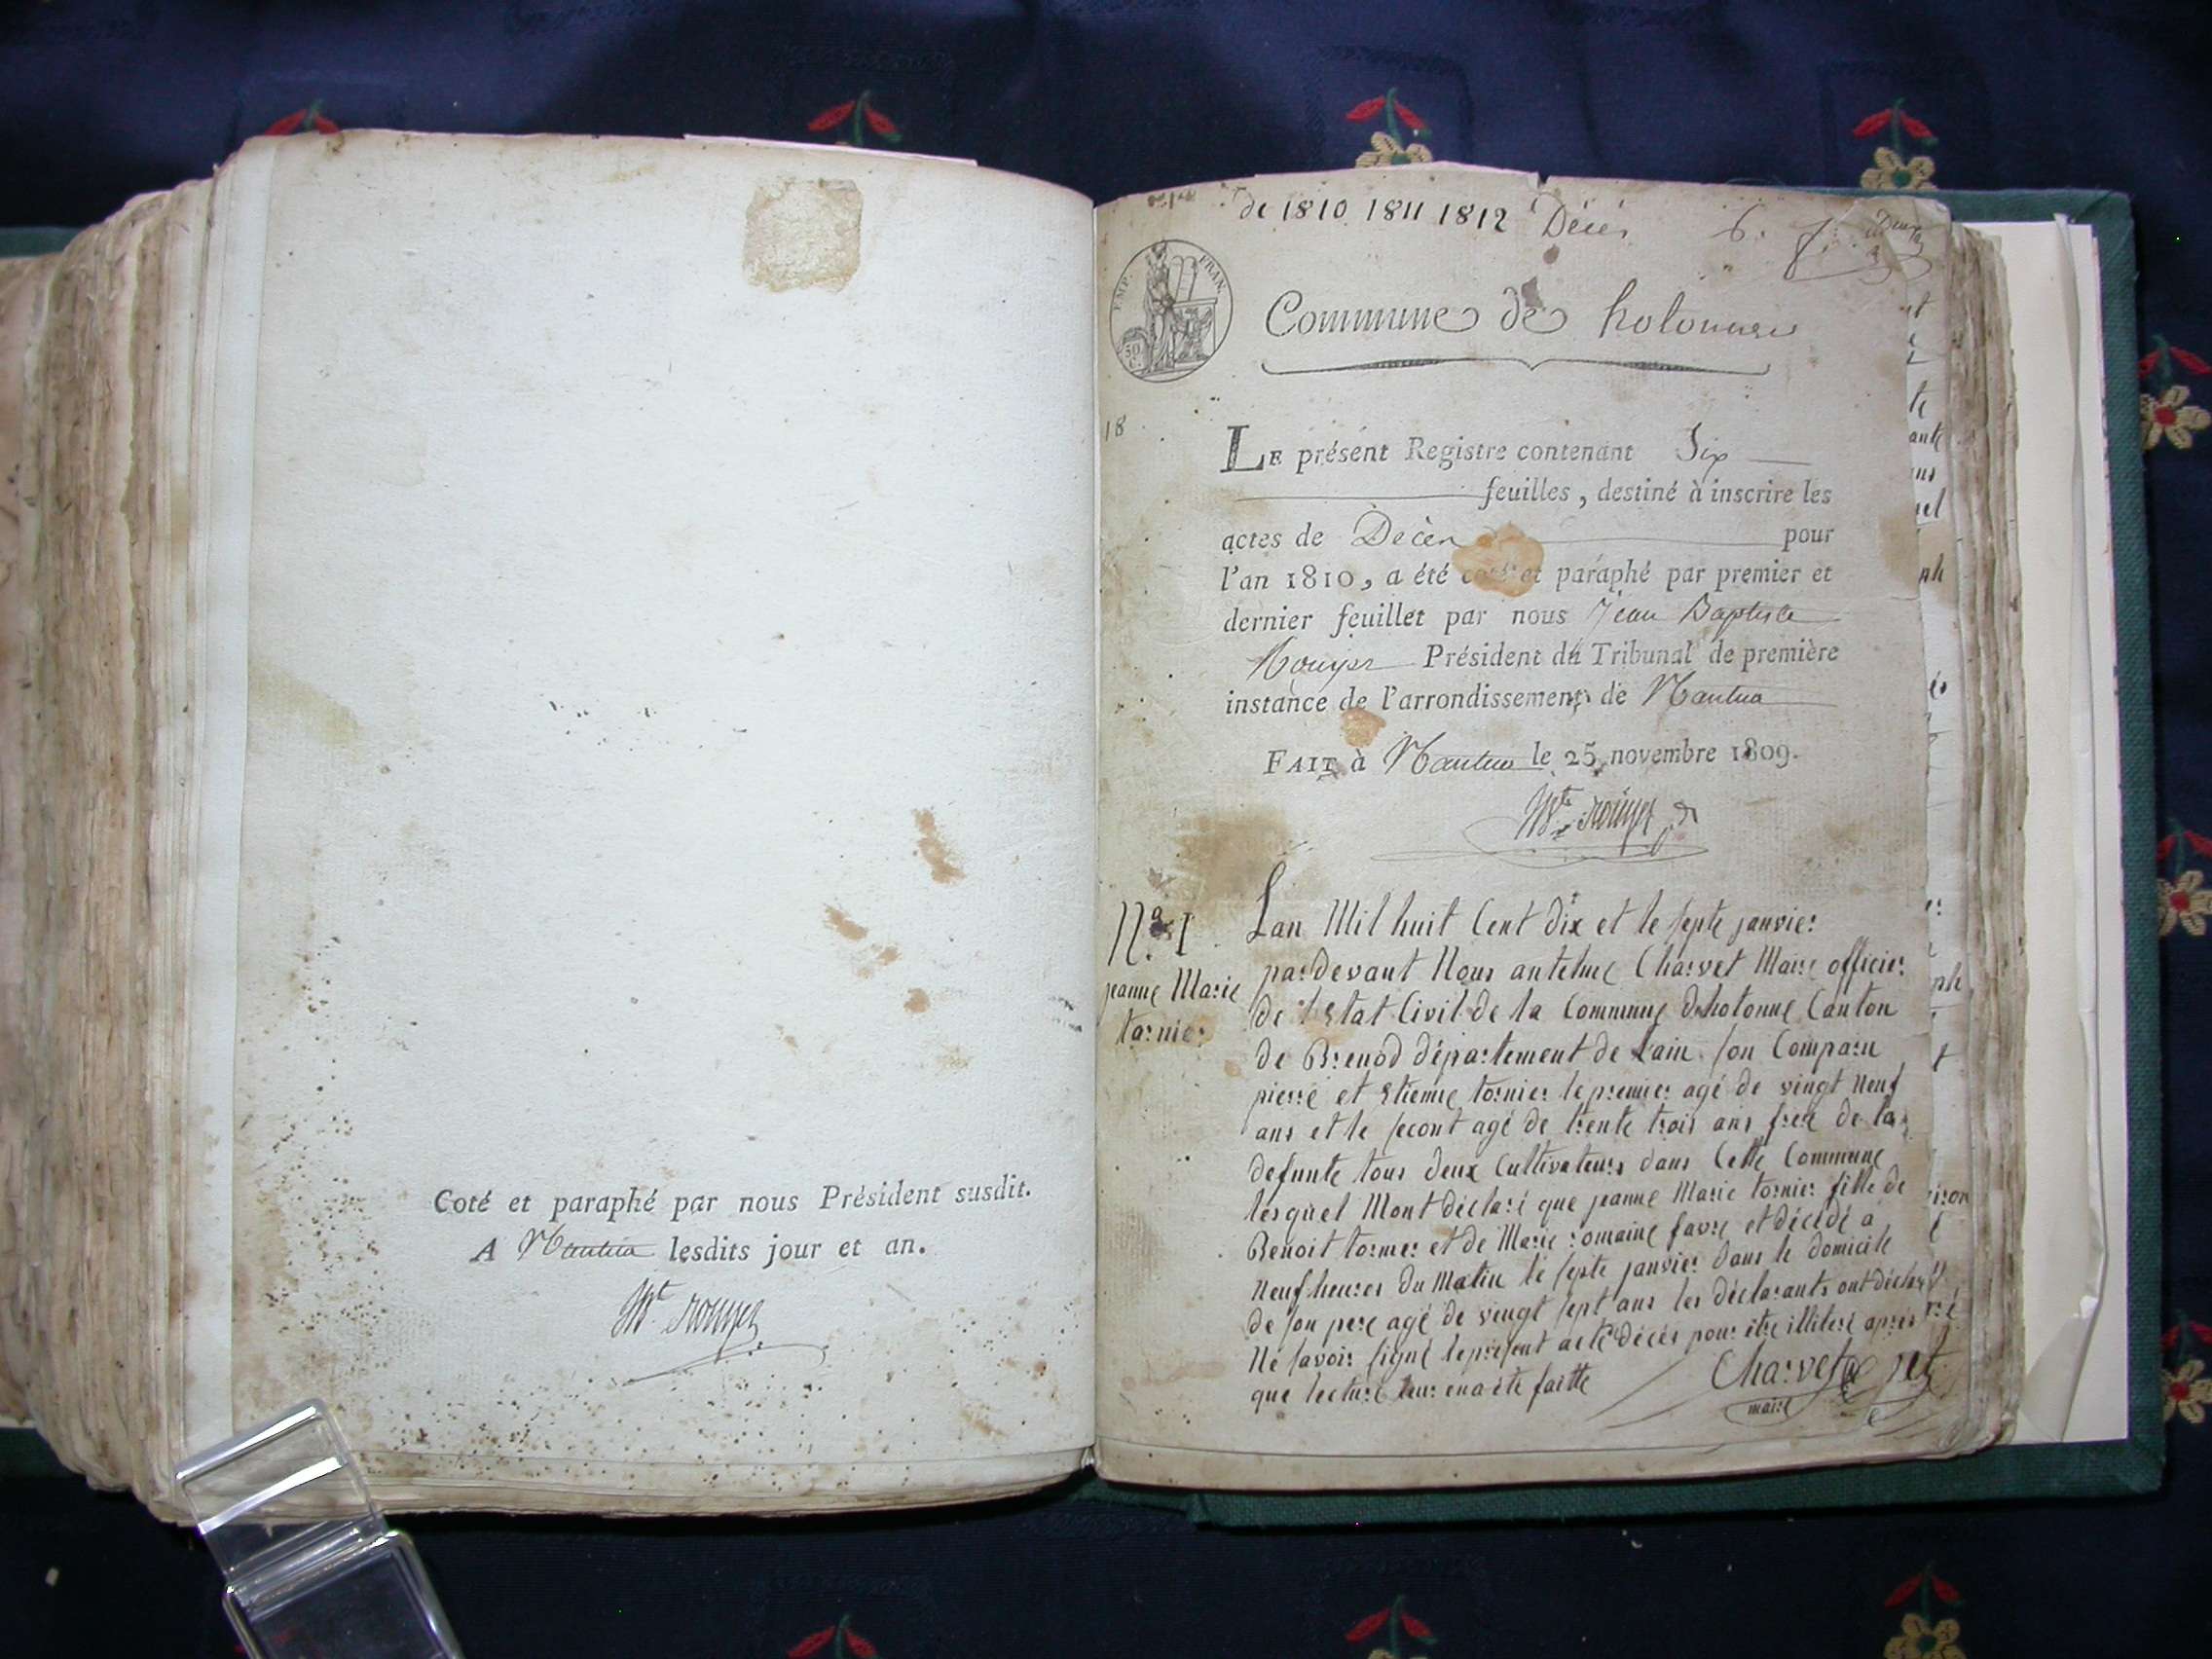 Coté et paraphé par nous Président susdit.
A Nantua lesdits jour et an.
de 1810 1811 1812 Décès 6.
EMP. FRAN.
50 C.
Commune de hotonne
18
LE présent Registre contenant Six
feuilles, destiné à inscrire les
actes de Décès pour
l'an 1810, a été coté et paraphé par premier et
dernier feuillet par nous Jean Baptiste
Rouyer Président du Tribunal de première
instance de l'arrondissement de Nantua
FAIT à Nantua le 25 novembre 1809.
rouyer
No. 1
jeanne Marie
tornier
Lan Mil huit Cent dix et le septe janvier
pardevant Nous antelme Charvet Maire officier
de l'Etat Civil de la Commune dhotonne Canton
de Brenod département de Lain son Comparu
pierre et Etienne tornier le premier agé de vingt Neuf
ans et le secont agé de trente trois ans frere de la
defunte tous deux Cultivateurs dans Cette Commune
lesquel Mont déclaré que jeanne Marie tornier fille de
Benoit tornier et de Marie romaine favre et décédé a
Neuf heures du Matin le septe janvier dans le domicile
de son pere agé de vingt sept ans les déclarants ont déclaré
Ne savoir signé le présent acte décés pour etre illiteré aprés
que lecture leur en a été faitte
Charvet
maire